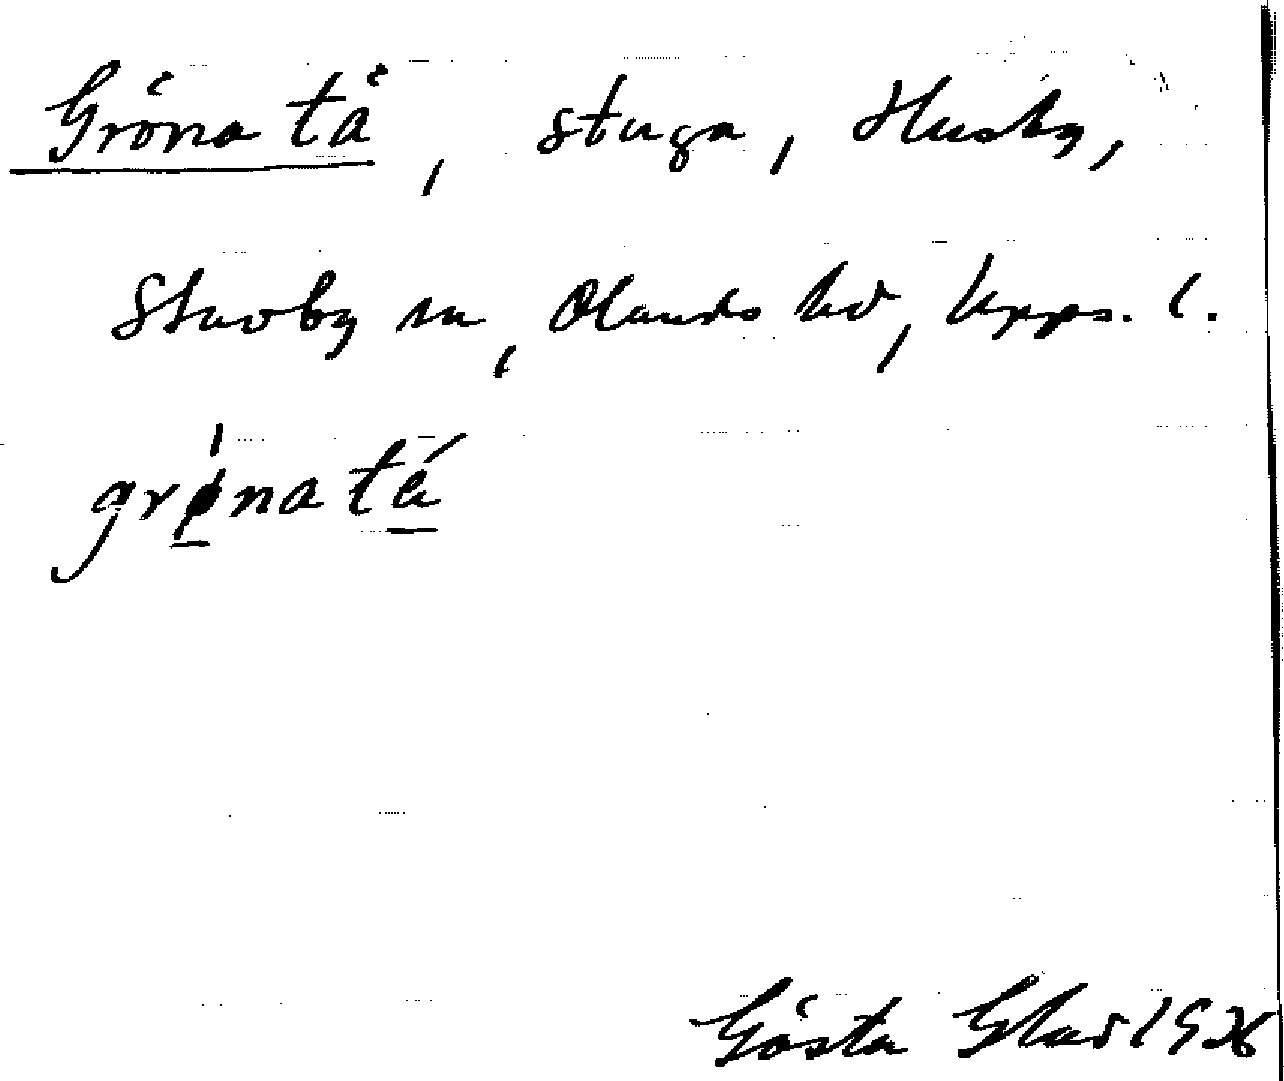 Gröna tå, stuga, Husby,
Stavby sn, Olands hd, Upps. l.
grǿ̱na tá̱
Gösta Glad 1926